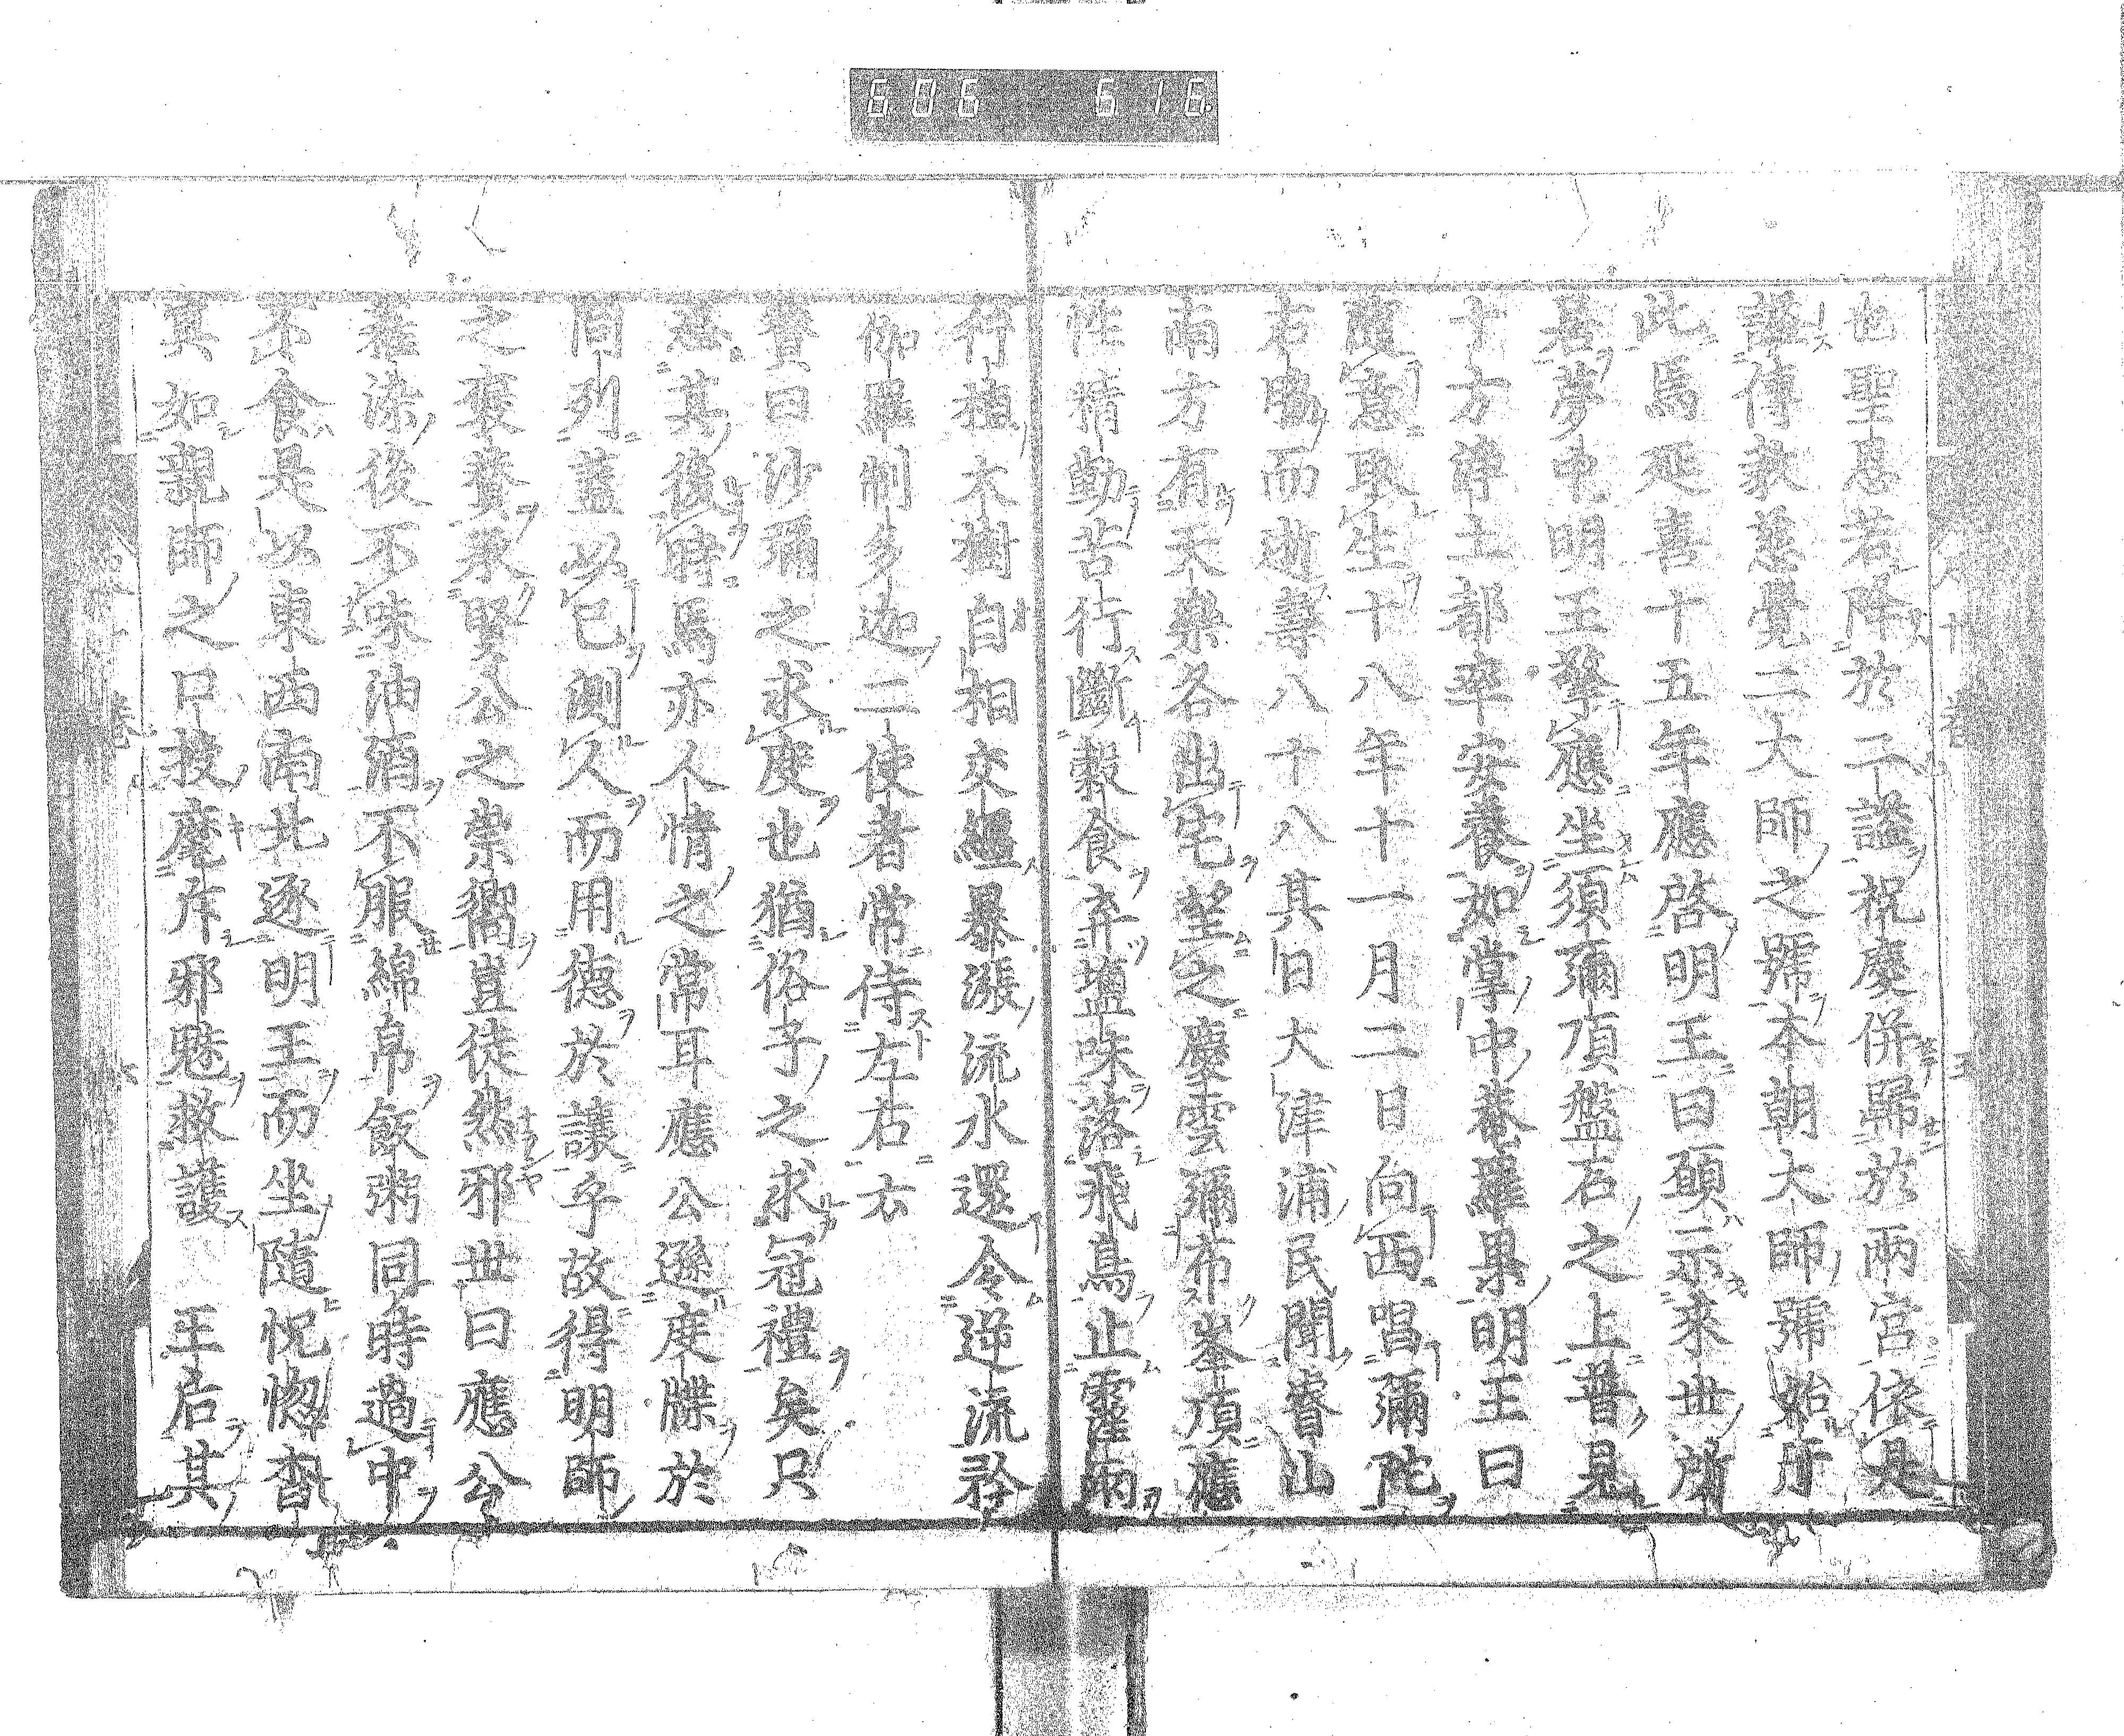 606 616
也聖恩若降於二謚祝慶併歸於兩宮依是
謚傳教慈覺二大師之號本朝大師號始于
此焉延喜十五年應啓明王曰願示來世所
居夢中明王擎應坐須彌頂盤石之上普見
十方淨土都率安養如掌中菴羅果明王曰
隨意取生十八年十一月二日向西唱彌陀
右脇而逝壽八十八其日大津浦民聞睿山
南方有天樂各出宅望之慶雲彌布峯頂應
性精勤苦行斷穀食弃鹽味落飛鳥止靈雨
行植木樹自相交縕暴漲流水還令逆流矜
伽羅制多迦二使者常侍左右云
贊曰沙彌之求度也猶俗子之求冠禮矣只
恐其後時焉亦人情之常耳應公遜度牒於
同列蓋以已測人而用德於讓乎故得明師
之褒養承賢公之崇嚮豈徒然邪世曰應公
落染後不味油酒不服綿帛飯粥同時過中
不食是以東西南北逐明王而坐隨怳惚杳
冥如親師之口授麾斥邪魅救護 王后其